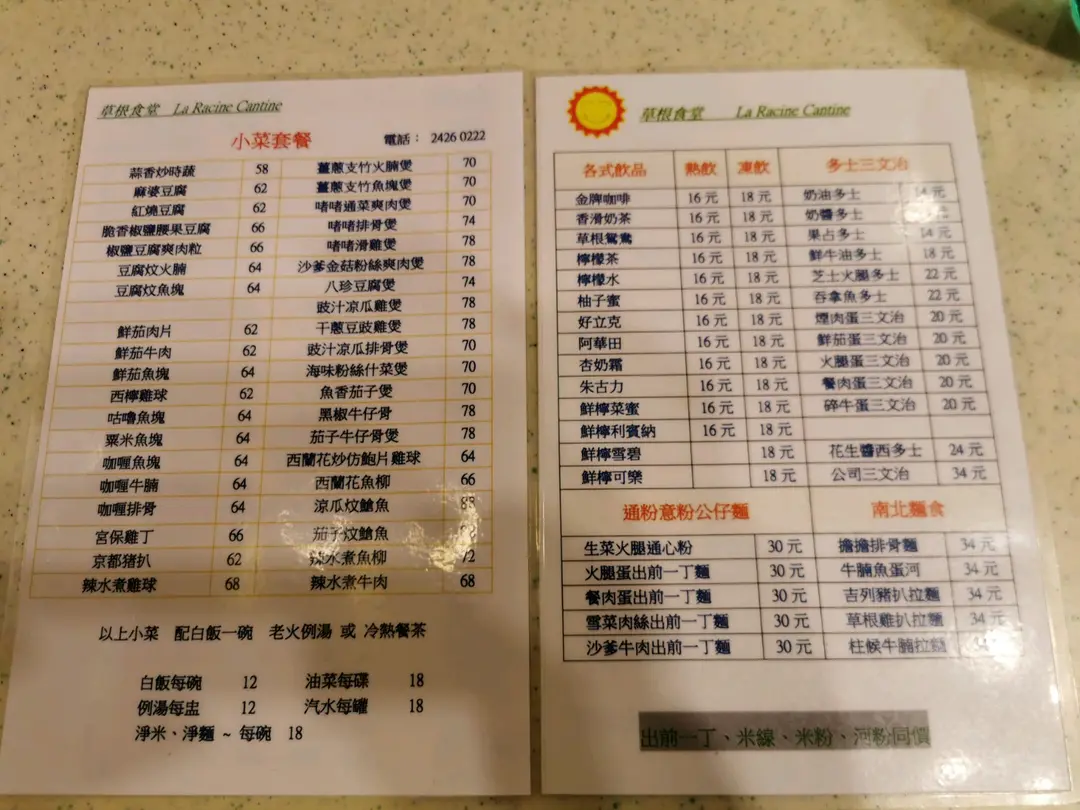 草根食堂 La Racine Cantine
小菜套餐 電話： 2426 0222
蒜香炒時蔬 58 薑蔥支竹火腩煲 70
麻婆豆腐 62 薑蔥支竹魚塊煲 70
紅燒豆腐 62 啫啫通菜爽肉煲 70
脆香椒鹽腰果豆腐 66 啫啫排骨煲 74
椒鹽豆腐爽肉粒 66 啫啫滑雞煲 78
豆腐炆火腩 64 沙爹金菇粉絲爽肉煲 78
豆腐炆魚塊 64 八珍豆腐煲 74
豉汁凉瓜雞煲 78
鮮茄肉片 62 干蔥豆豉雞煲 78
鮮茄牛肉 62 豉汁凉瓜排骨煲 70
鮮茄魚塊 64 海味粉絲什菜煲 70
西檸雞球 62 魚香茄子煲 70
咕嚕魚塊 64 黑椒牛仔骨 78
粟米魚塊 64 茄子牛仔骨煲 78
咖喱魚塊 64 西蘭花炒仿鮑片雞球 64
咖喱牛腩 64 西蘭花魚柳 66
咖喱排骨 64 涼瓜炆鯰魚
宮保雞丁 66 茄子炆鯰魚
京都豬扒 62 辣水煮魚柳 72
辣水煮雞球 68 辣水煮牛肉 68
以上小菜 配白飯一碗 老火例湯 或 冷熱餐茶
白飯每碗 12 油菜每碟 18
例湯每盅 12 汽水每罐 18
淨米、淨麵 ~ 每碗 18
草根食堂 La Racine Cantine
各式飲品 熱飲 凍飲 多士三文治
金牌咖啡 16 元 18 元 奶油多士 14 元
香滑奶茶 16 元 18 元 奶醬多士 元
草根鴛鴦 16 元 18 元 果占多士 14 元
檸檬茶 16 元 18 元 鮮牛油多士 18 元
檸檬水 16 元 18 元 芝士火腿多士 22 元
柚子蜜 16 元 18 元 吞拿魚多士 22 元
好立克 16 元 18 元 煙肉蛋三文治 20 元
阿華田 16 元 18 元 鮮茄蛋三文治 20 元
杏奶霜 16 元 18 元 火腿蛋三文治 20 元
朱古力 16 元 18 元 餐肉蛋三文治 20 元
鮮檸菜蜜 16 元 18 元 碎牛蛋三文治 20 元
鮮檸利賓納 16 元 18 元
鮮檸雪碧 18 元 花生醬西多士 24 元
鮮檸可樂 18 元 公司三文治 34 元
通粉意粉公仔麵 南北麵食
生菜火腿通心粉 30 元 擔擔排骨麵 34 元
火腿蛋出前一丁麵 30 元 牛腩魚蛋河 34 元
餐肉蛋出前一丁麵 30 元 吉列豬扒拉麵 34 元
雪菜肉絲出前一丁麵 30 元 草根雞扒拉麵 34 元
沙爹牛肉出前一丁麵 30 元 柱候牛腩拉麵 34
出前一丁、米線、米粉、河粉同價